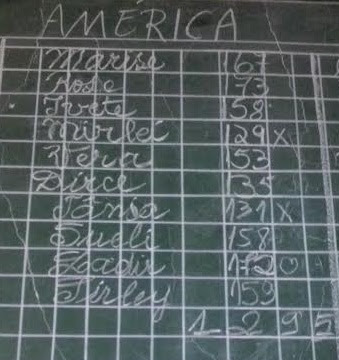 AMÉRICA
Marise 167
Rose 73
Ivete 158
Mirlei 129 X
Vera 153
Dirce 135
Tânia 131 X
Sueli 158
172 O
Sirley 159
1 2 9 5